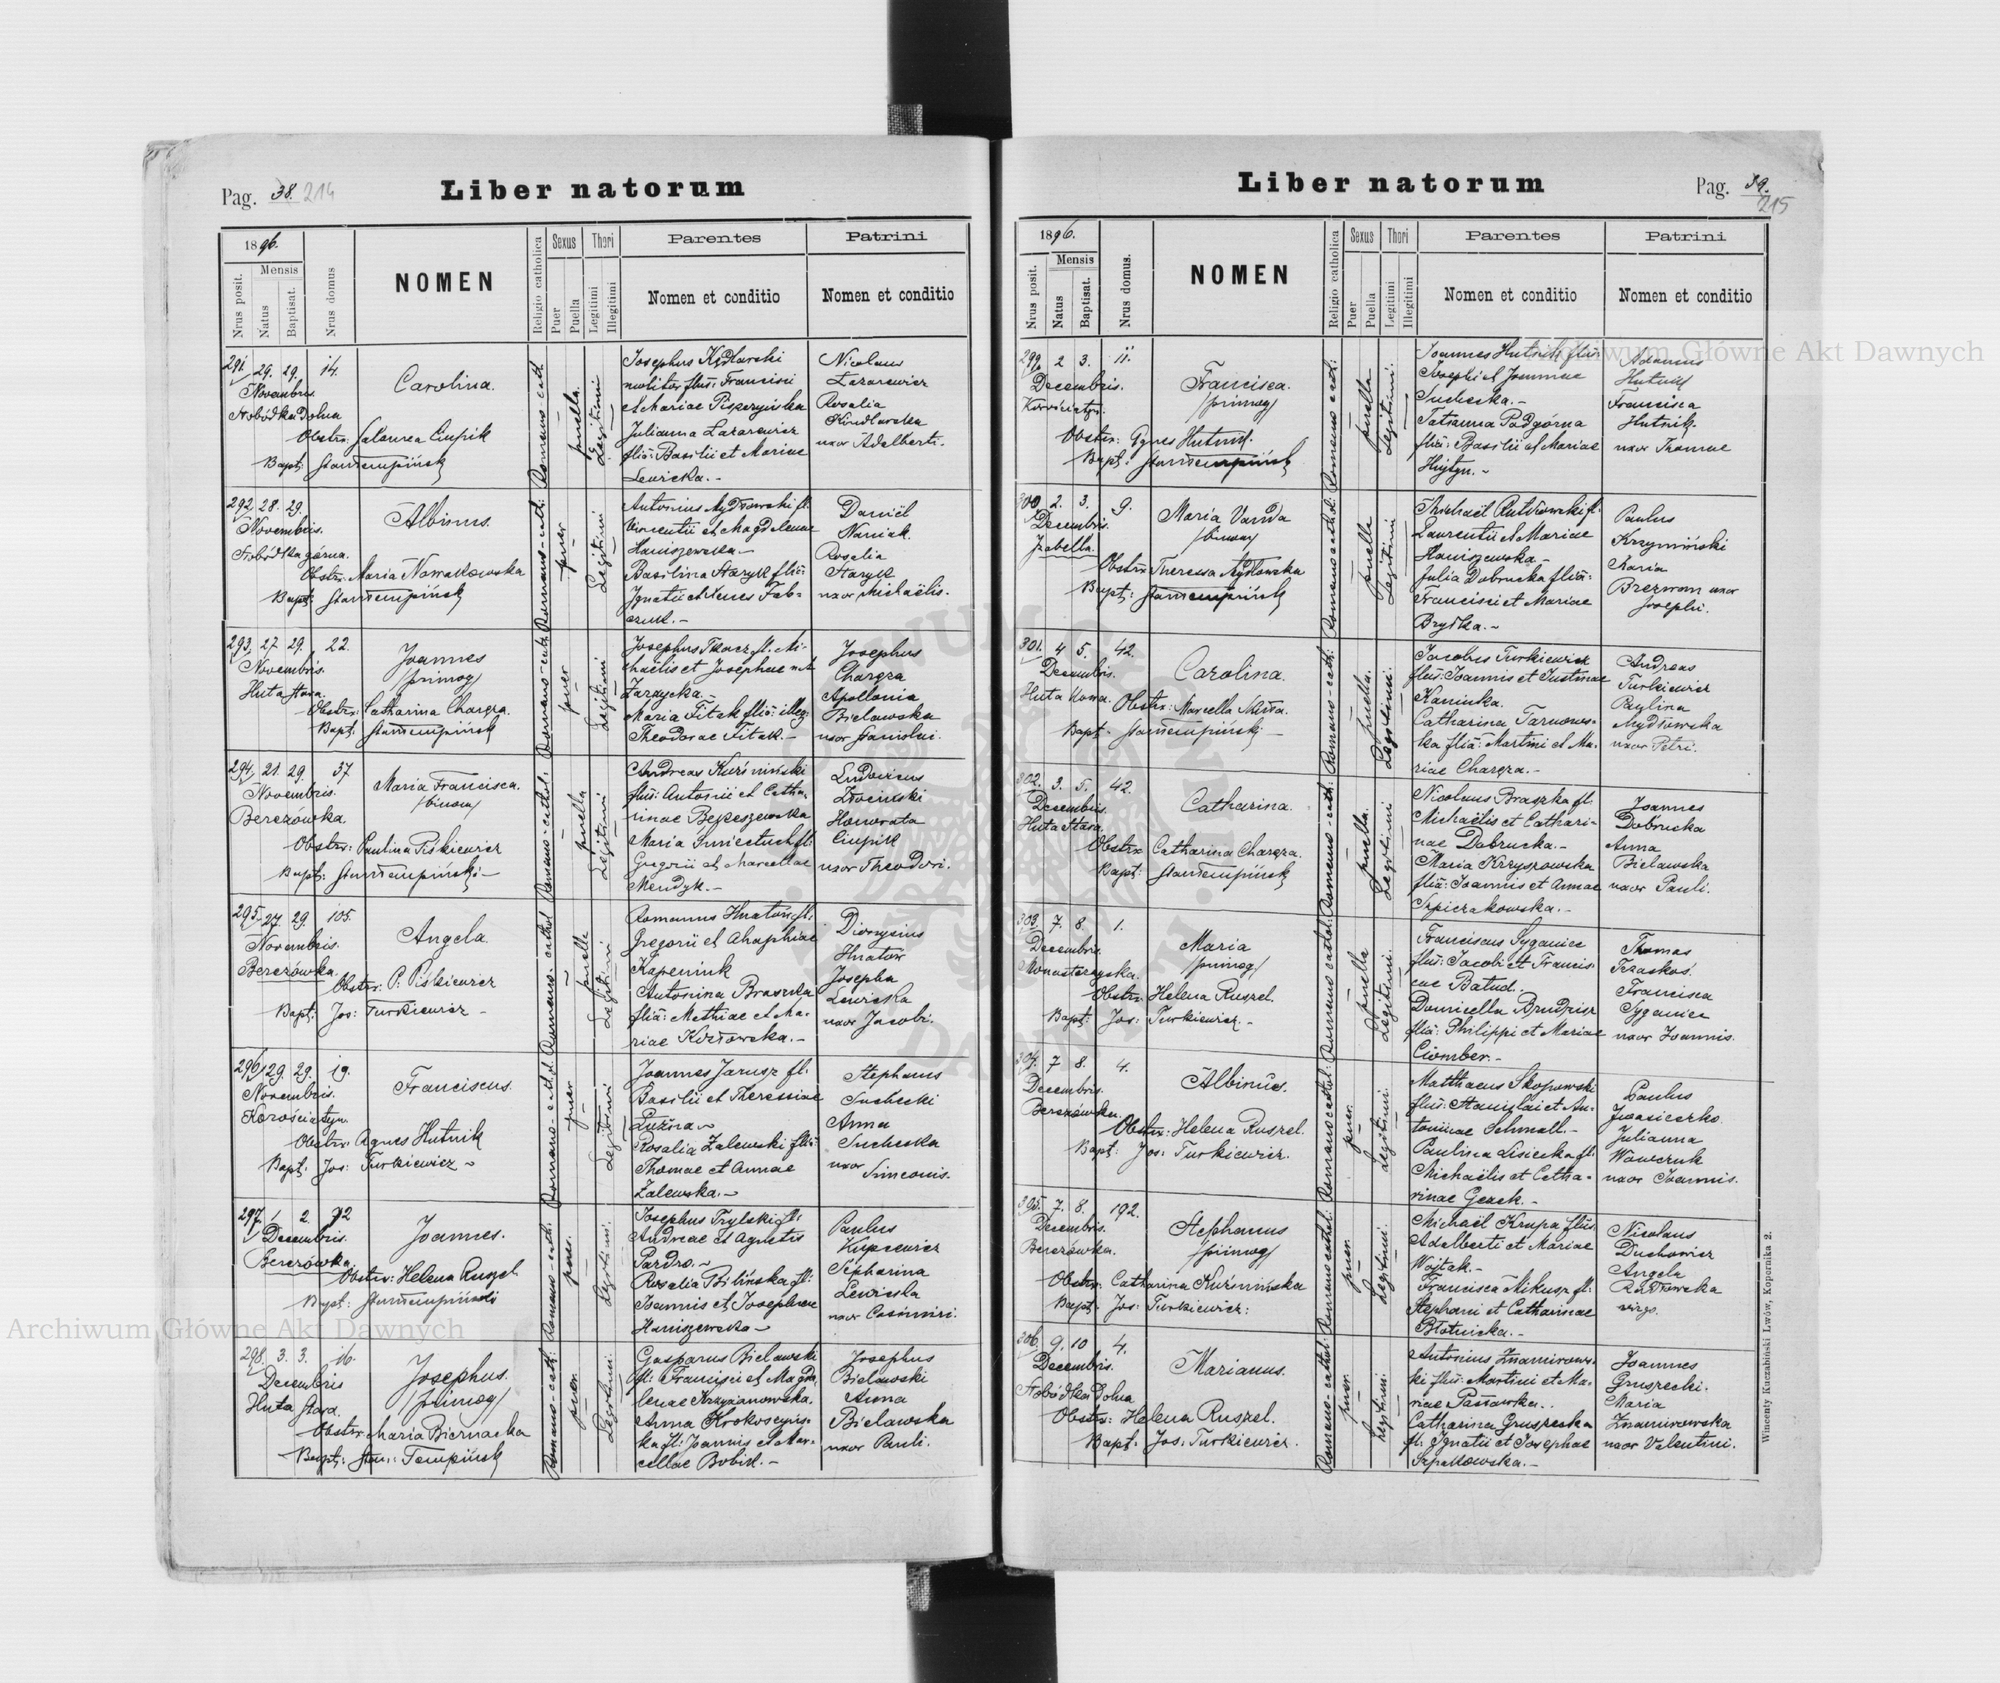 Pag. 38. 214
Liber natorum
1896.
Nrus posit.
Mensis
Natus
Baptisat.
Nrus domus
NOMEN
Religio catholica
Sexus
Puer
Puella
Thori
Legitimi
Illegitimi
Parentes
Nomen et conditio
Patrini
Nomen et conditio
291. 29. 29. 14.
Novembris
Słobódka Dolna
Carolina.
Obstrx:
Bapt:
Romano-cath:
puella
Legitimi
Josephus
Francisci
et Mariae
Julianna Lazarewicz
filia: Basilii et Mariae
Lewicka.-
Nicolaus
Lazarewicz
Rosalia
uxor Adalberti.
292. 28. 29.
Novembris.
Słobódka górna.
Albinus.
Obstrx: Maria Nowakowska
Bapt:
Romano-cath:
puer
Legitimi
Antonius Mydłowski fl.
Vincentii et Magdalenae
Haniszewska.-
Basilina Haryk filia:
Ignatii et
Daniel
Rosalia
Haryk
uxor Michaëlis.
293. 27 29. 22.
Novembris.
Huta stara.
Joannes
/primog/
Obstrx: Catharina Charęza.
Bapt:
Romano-cath:
puer
Legitimi
Josephus Tkacz fl. Mi-
chaëlis et Josephae
Maria Fitak filia: illeg:
Theodorae Fitak.-
Josephus
Charęza
Apollonia
Bielawska
uxor Stanislai.
294. 21. 29. 37
Novembris.
Berezówka
Maria Francisca.
/binom/
Obstrx: Paulina Piśkiewicz
Bapt:
Romano-cathol:
puella
Legitimi
Andreas Kuźmiński
filius: Antonii et Catha-
rinae
Maria
Gregorii et Marcellae
Mendyk.-
Ludovicus
Honorata
Ciupik
uxor Theodori.
295. 27. 29. 105.
Novembris.
Berezówka.
Angela.
Obstrx: P. Piśkiewicz
Bapt. Jos: Turkiewicz -
Romano-cathol
puella
Legitimi
Romanus Hnatów fl:
Gregorii et Ahaphiae
Antonina Braszka
filia: Mathiae et Ma-
riae Kozłowska.-
Dionysius
Hnatów
Josepha
Lewicka
uxor Jacobi.
296. 29. 29. 19.
Novembris.
Korościatyn.
Franciscus.
Obstrx: Agnes Hutnik
Bapt. Jos: Turkiewicz -
Romano-cathol:
puer
Legitimi
Joannes Jarusz fl.
Basilii et Theressiae
Łużna -
Rosalia Zalewski filia:
Thomae et Annae
Zalewska.-
Stephanus
Suchecki
Anna
Suchecka
uxor
Simeonis.
297. 1 2. 72
Decembris.
Berezówka.
Joannes.
Obstrx: Helena Ruszel
Bapt:
Romano-cath:
puer.
Legitimi.
Josephus Trylski fl:
Andreae et Agnetis
Pardro.-
Rosalia Bilińska fl:
Joannis et Josephae
Haniszewska -
Paulus
Kupcewicz
Lewicka
uxor Casimiri.
298. 3. 3. 16.
Decembris
Huta stara.
Josephus.
/primog/
Obstrx Maria Biernacka
Bapt: Stan: Tempiński
Romano-cath:
puer.
Legitimi.
Gasparus Bielawski
fl: Francisci et Magda-
lenae Krzyżanowska.
Anna Krokoszyńs-
ka fl: Joannis et Mar-
cellae Bobik.-
Josephus
Bielawski
Anna
Bielawska
uxor Pauli.
Liber natorum
Pag. 39. 215
1896.
Nrus posit.
Mensis
Natus
Baptisat.
Nrus domus.
NOMEN
Religio catholica
Sexus
Puer
Puella
Thori
Legitimi
Illegitimi
Parentes
Nomen et conditio
Patrini
Nomen et conditio
299. 2 3. 11.
Decembris.
Korościatyn.
Francisca.
/primog/
Obstrx: Agnes Hutnik.
Bapt:
Romano-cath:
puella
Legitimi.
Joannes Hutnik filius:
Josephi et Joannae
Suchecka.-
Tatianna Podgórna
filia: Basilii et Mariae
Adamus
Hutnik
Francisca
Hutnik.
uxor Thomae
300. 2. 3. 9.
Decembris.
Izabella.
Maria Vanda
/binom/
Obstrx Theressa Mydłowska
Bapt:
Romano-cathol:
puella
Legitimi
Michaël Rutkowski fl:
Laurentii et Mariae
Haniszewska.-
Julia Dobrucka filia:
Francisci et Mariae
Paulus
Krzymiński
Maria
uxor
Josephi.
301. 4 5. 42.
Decembris.
Huta nowa.
Carolina.
Obstrx: Marcella
Bapt.
Romano-cath:
puella.
Legitimi:
Jacobus Turkiewicz
filius: Joannis et Justinae
Kaniuka.
Catharina Tarnows-
ka filia: Martini et Ma-
riae Charęza.-
Andreas
Turkiewicz
Paulina
Mydłowska
uxor Petri.
302. 3. 5. 42.
Decembris.
Huta stara.
Catharina.
Obstrx Catharina Charęza.
Bapt:
Romano-cath:
puella.
Legitimi.
Nicolaus Braszka fl:
Michaëlis et Cathari-
nae Dobrucka.-
Maria Krzyszowska
filia: Joannis et Annae
Szpiczakowska.-
Joannes
Dobrucka
Anna
Bielawska
uxor Pauli.
303. 7. 8. 1.
Decembris.
Monasterzyska.
Maria
/primog/
Obstrx Helena Ruszel.
Bapt: Jos: Turkiewicz.-
Romano cathol:
puella
Legitimi.
Franciscus Syganiec
filius: Jacobi et Francis-
cae Batud.
Domicella Brudzisz
filia: Philippi et Mariae
Ciomber.-
Thomas
Trzaskoś.
Francisca
Syganiec
uxor Joannis.
304. 7 8. 4.
Decembris.
Berezówka.
Albinus.
Obstrx: Helena Ruszel.
Bapt: Jos: Turkiewicz.
Romano cathol:
puer.
Legitimi.
Matthaeus Skopowski
filius: Stanislai et An-
toninae Schmall.-
Paulina Lisiecka fl:
Michaëlis et Catha-
rinae
Paulus
Iwasieczko.
Julianna
Wawczuk
uxor Joannis.
305. 7. 8. 192.
Decembris.
Berezówka.
Stephanus
/primog/
Obstrx. Catharina Kuźmińska
Bapt. Jos: Turkiewicz:
Romano cathol.
puer.
Legitimi.
Michaël Krupa filius
Adalberti et Mariae
Wojtak.-
Francisca Mikusz fl:
Stephani et Catharinae
Błotnicka.-
Nicolaus
Duchowicz
Angela
Radłowska
virgo.
306. 9. 10 4.
Decembris.
Słobódka Dolna
Marianus.
Obstrx: Helena Ruszel.
Bapt: Jos: Turkiewicz.
Romano-cathol:
puer.
legitimi.
Antonius Znamirows-
ki filius: Martini et Ma-
riae Passowska..
Catharina Gruszecka
fl: Ignatii et Josephae
Szpakowska.-
Joannes
Gruszecki.
Maria
Znamirowska
uxor Valentini.
Wincenty Kuczabiński Lwów, Kopernika 2.
Archiwum Główne Akt Dawnych
Archiwum Główne Akt Dawnych